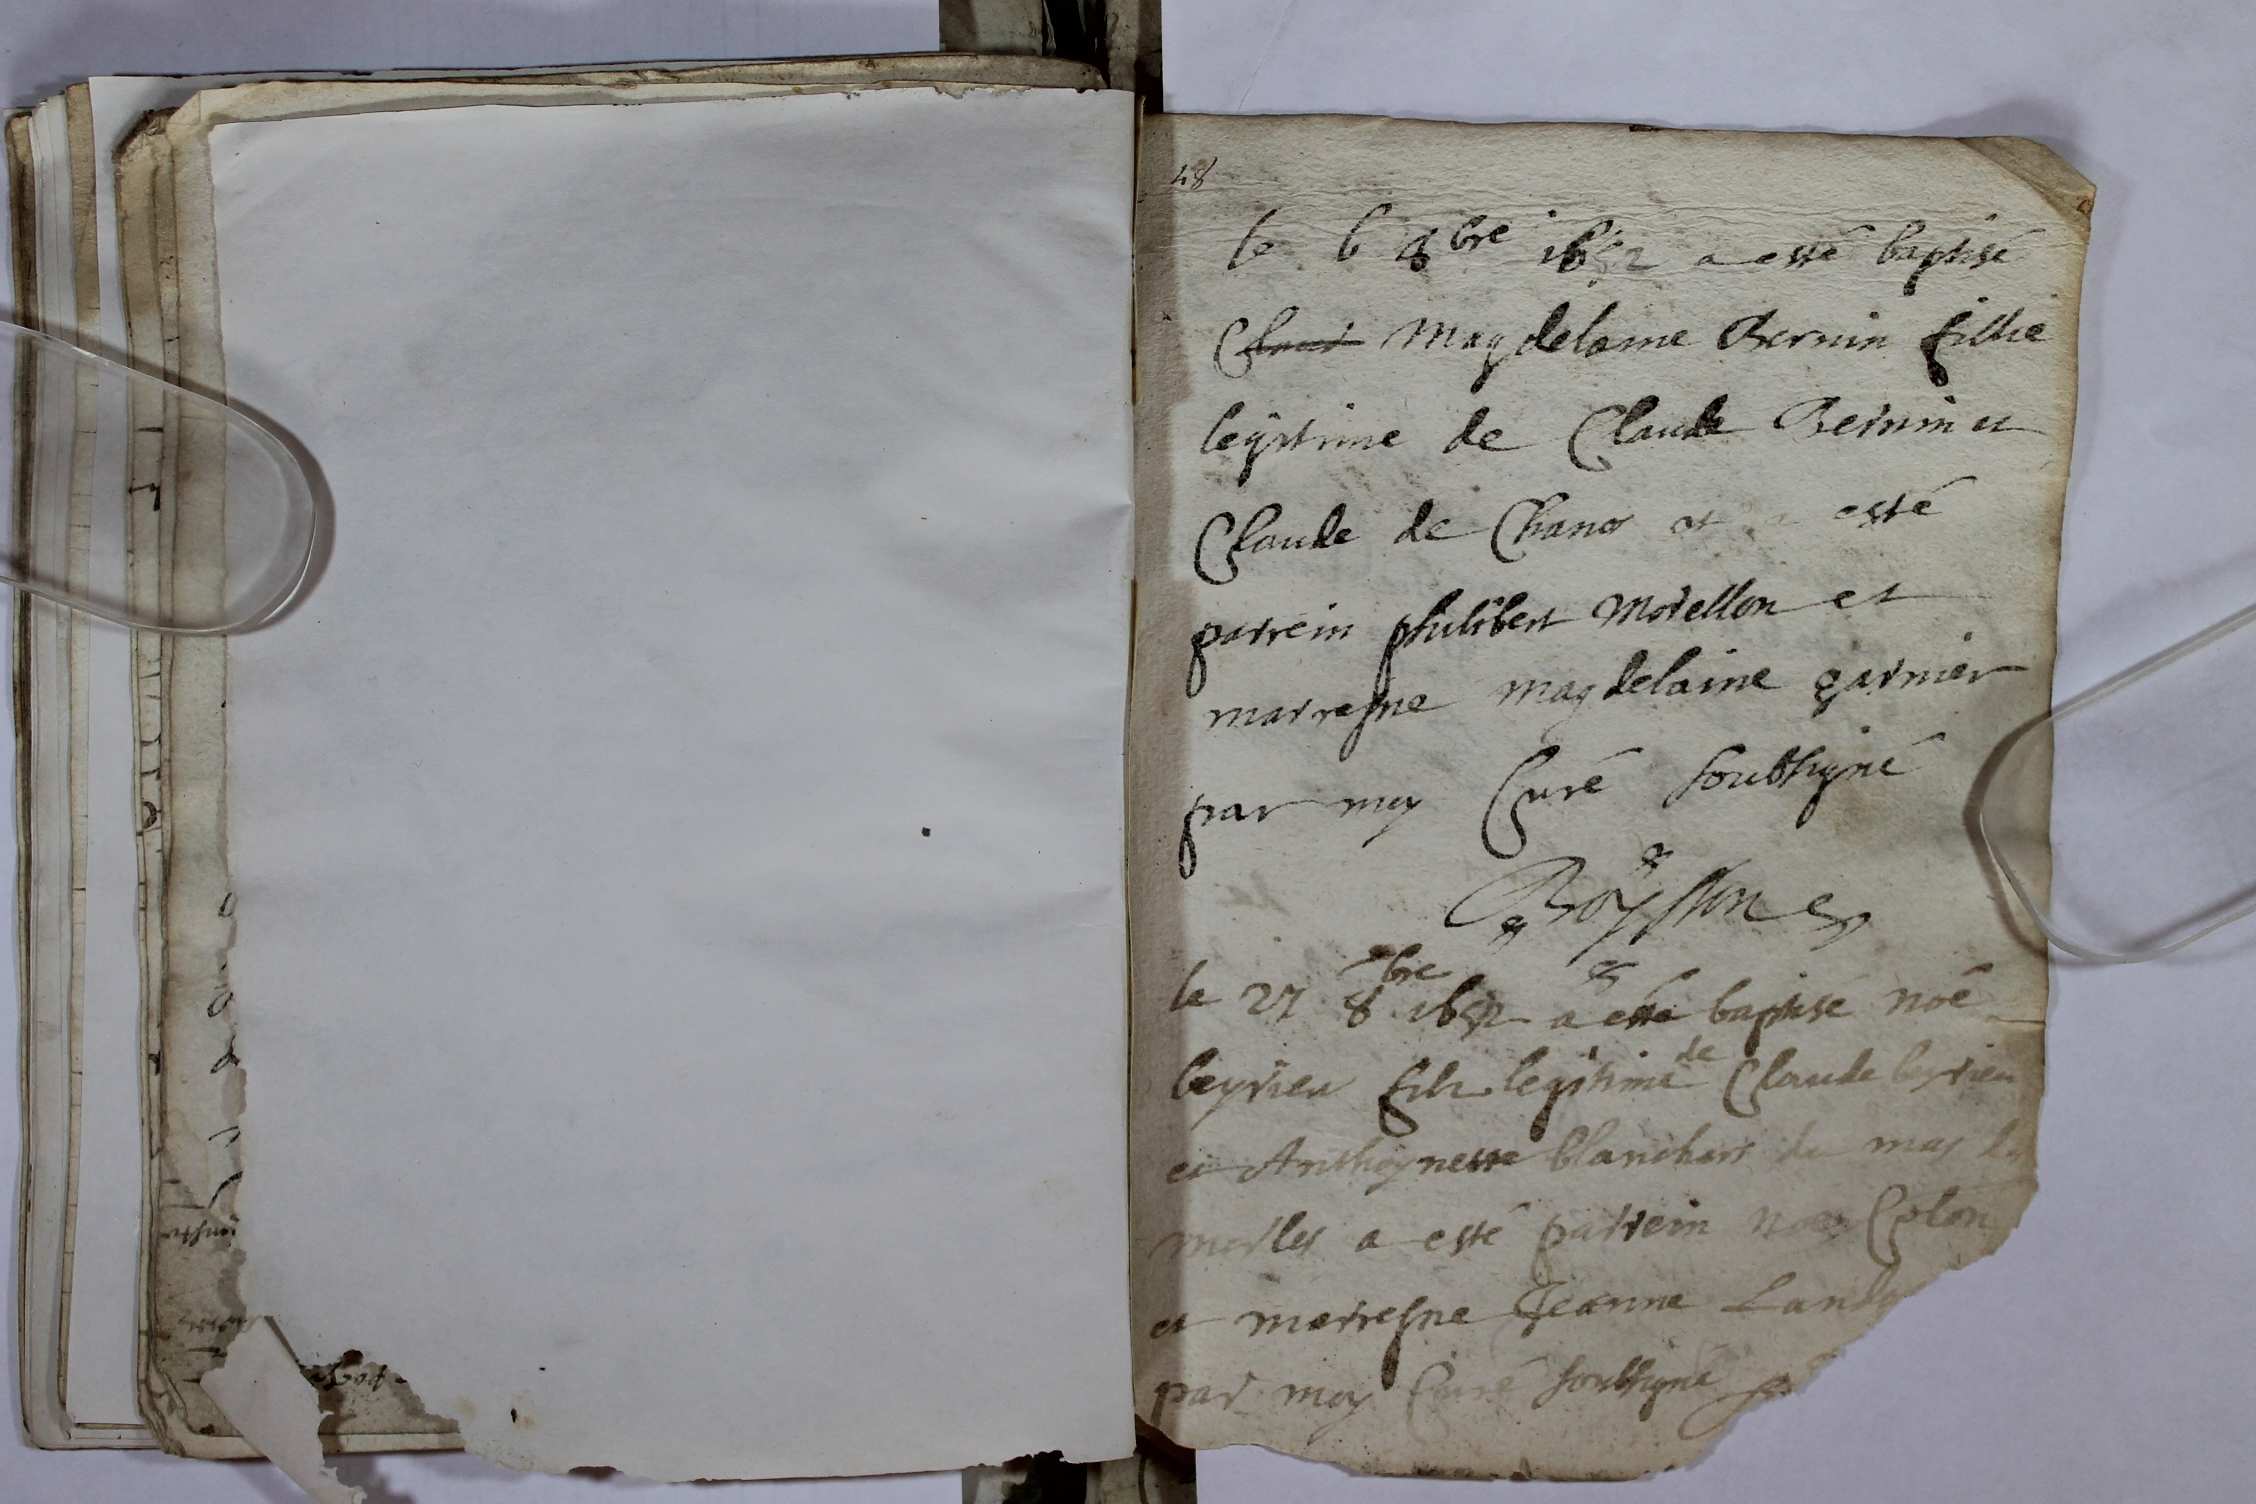 48
le 6 8bre 1652 a esté baptisé
Claud Magdelaine Bernin fillie
legitime de Claude Bernin et
Claude de Chanos et a esté
parrein philibert Morellon et
marresne magdelaine garnier
par moy Curé soubsigné
Boysson
le 27 8bre 1652 a esté baptisé noé
leyrieu filz legitime de Claude leyrieu
et Anthoynette blanchars du mas
a esté parrein noe Colon
et marresne Jeanne Land
par moy Curé soubsigné